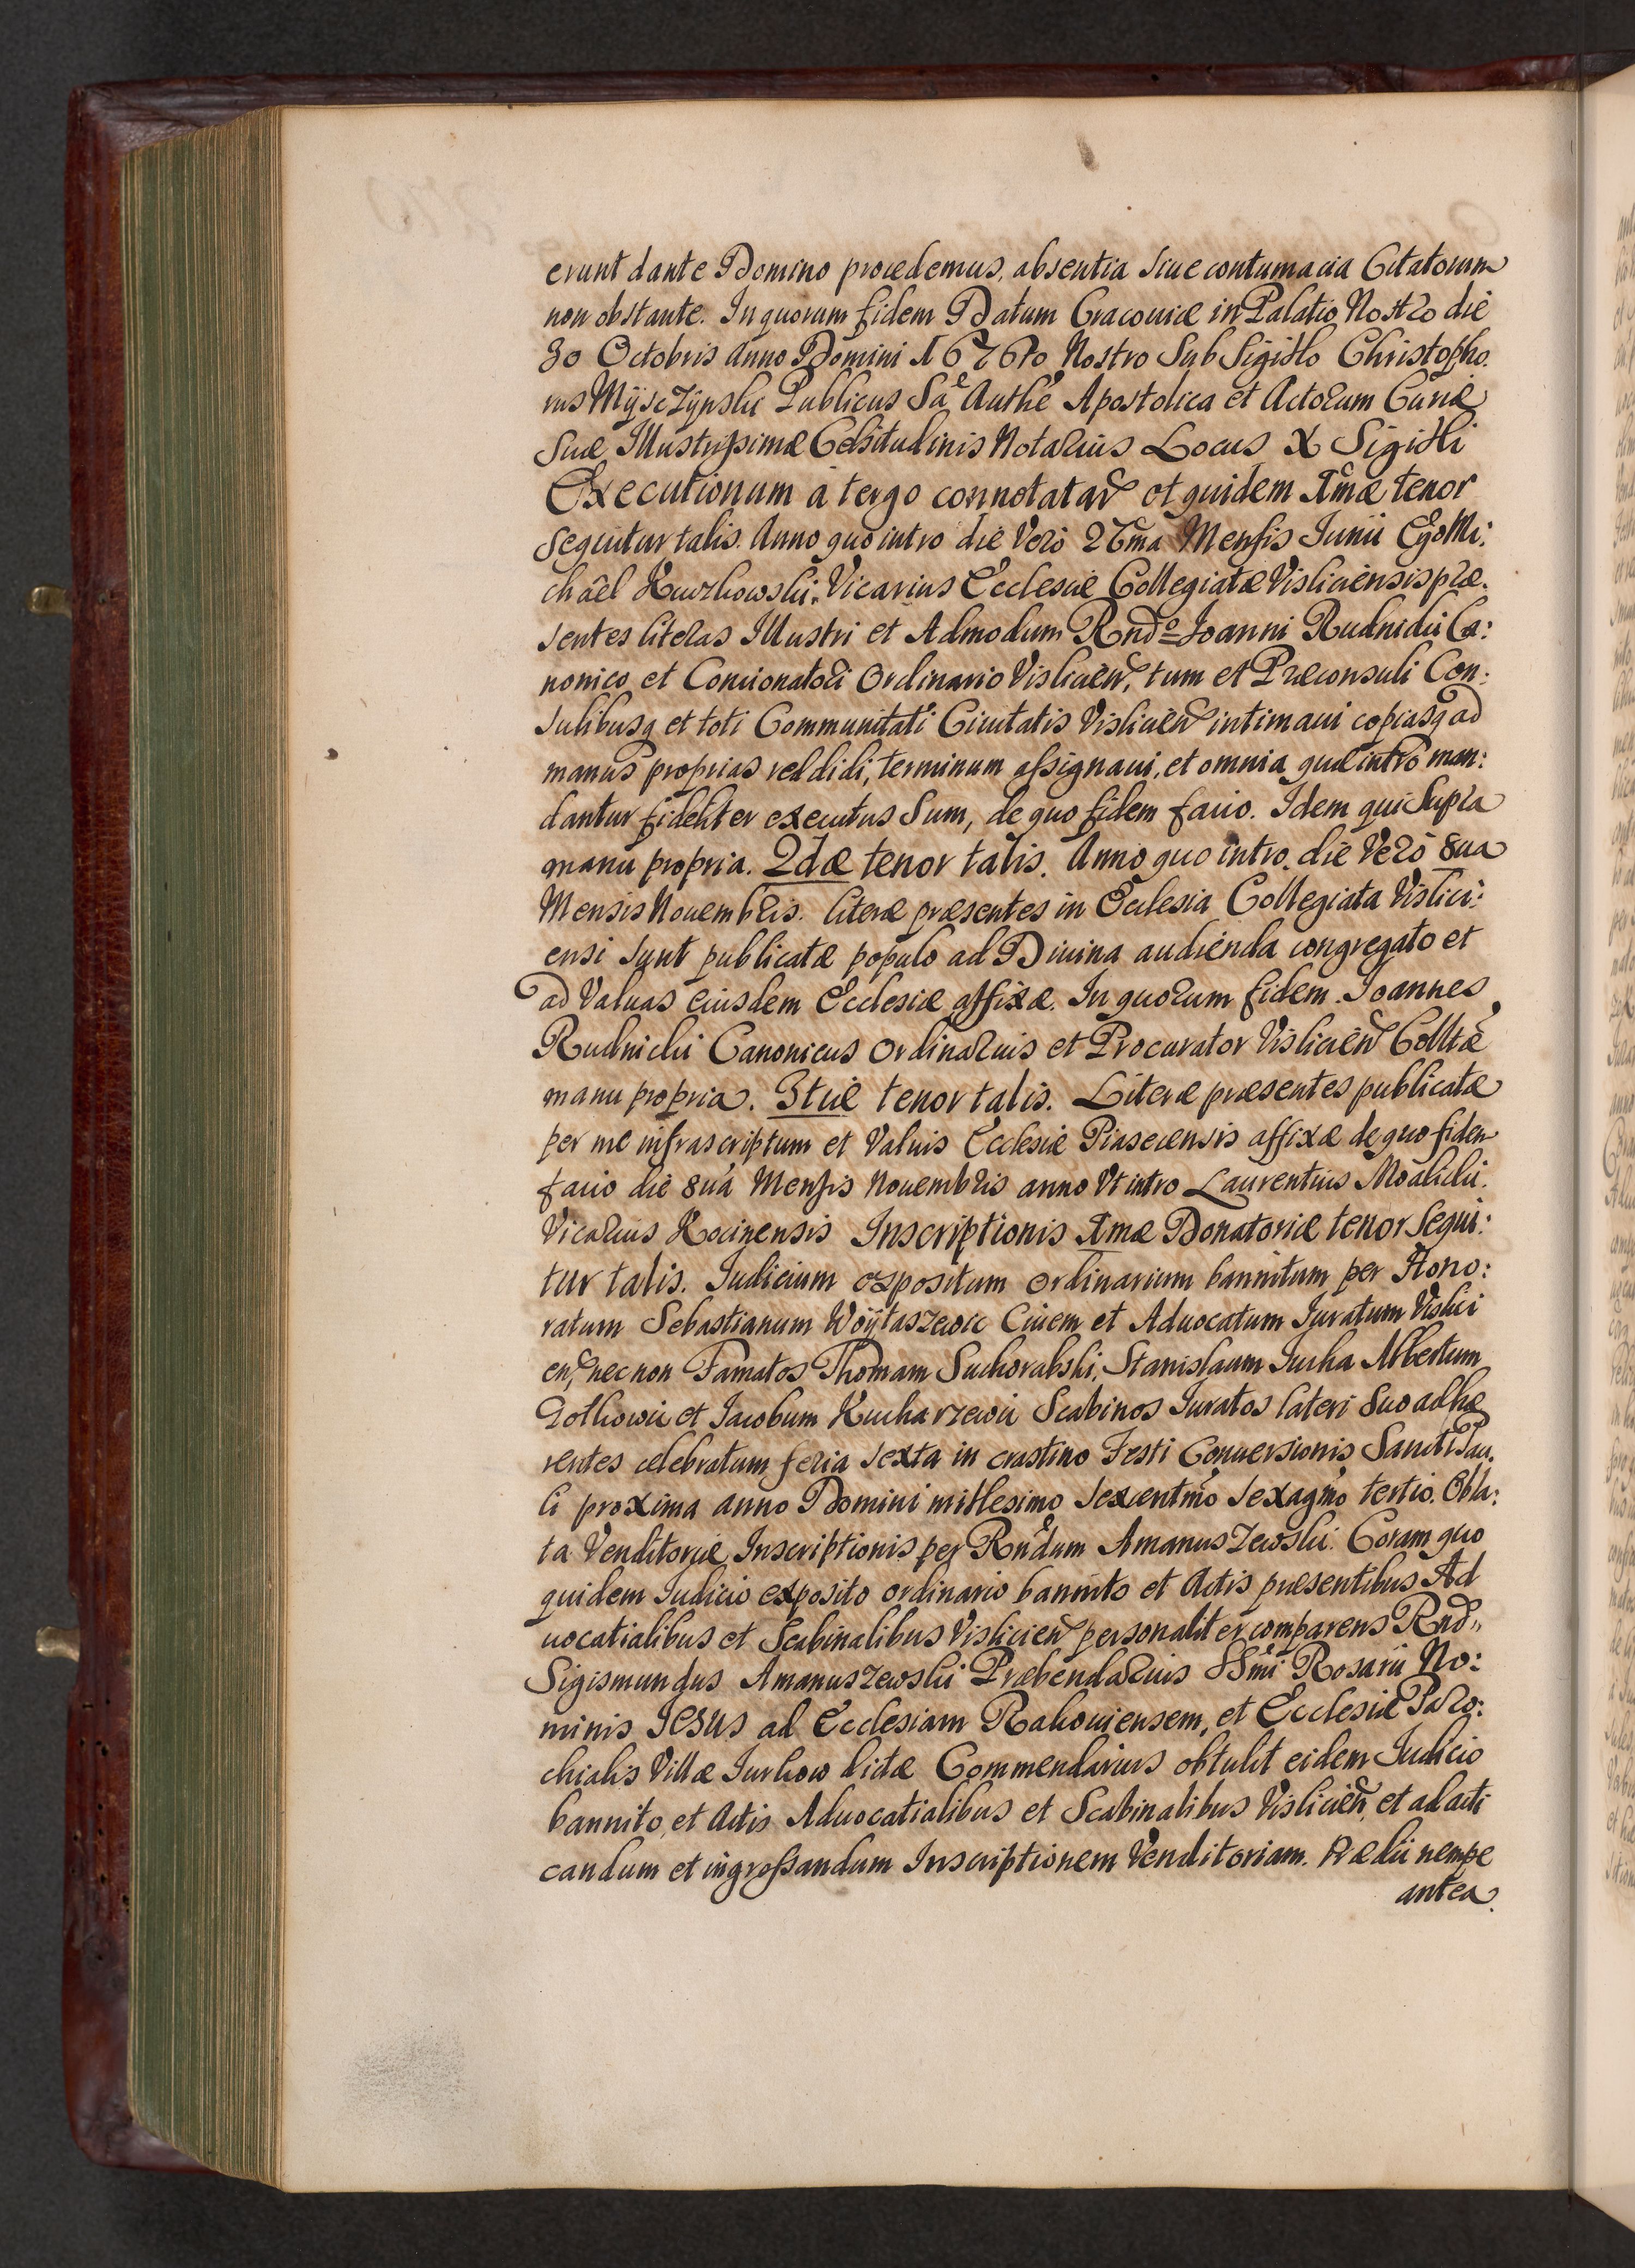 erunt dante Domino procedemus, absentia siue contumacia Citatorum
non obstante. In quorum fidem Datum Cracouiæ in Palatio Nostro die
30 Octobris anno Domini 1676to Nostro Sub Sigillo Christopho.
rus Mÿsczÿnski Publicus Sâ Authê Apostolica et Actorum Curiæ
Suæ Illustrissimæ Celsitudinis Notarius Locus X Sigilli
Executionum à tergo connotatar et quidem 1mæ tenor
sequitur talis. Anno quo intro die Verò 26ma Mensis Iunii Ego Mi:
chaël Kurzkowski, Vicarius Ecclesiæ Collegiatæ Visliciensis præ.
sentes literas Illustri et Admodum Rndo Joanni Rudnicki Ca:
nonico et Concionatori Ordinario Vislicien, tum et Præconsuli Con:
sulibusq et toti Communitati Ciuitatis Vislicien intimaui copiasq ad
manus proprias reddidi, terminum assignaui, et omnia quæ intro man:
dantur fideliter executus Sum, de quo fidem facio. Idem qui Supra
manu propria. 2dæ tenor talis. Anno quo intro. die Verò 8ua
Mensis Nouembris. literæ præsentes in Ecclesia Collegiata Vislici:
ensi sunt publicatæ populo ad Diuina audienda congregato et
ad Valuas eiusdem Ecclesiæ affixæ. In quorum fidem. Joannes
Rudnicki Canonicus Ordinarius et Procurator Vislicien Colltæ
manu propria. 3tiæ tenor talis. Literæ præsentes publicatæ
per me infrascriptum et Valuis Ecclesiæ Piasecensis affixæ de quo fidem
facio die 8uâ Mensis Nouembris anno Vt intro Laurentius Moalicki.
Vicarius Kocinensis Inscriptionis 1mæ Donatoriæ tenor Sequi:
tur talis. Iudicium expositum ordinarium bannitum per Hono:
ratum Sebastianum Wöÿtaszewic Ciuem et Aduocatum Juratum Vislici
en, nec non Famatos Thomam Suchorabski, Stanislaum Jucha Albertum
Golkowic et Jacobum Kucharzewic Scabinos Iuratos lateri Suo adhæ
rentes celebratum feria sexta in crastino Festi Conuersionis Sancti Pau.
li proxima anno Domini millesimo sexcentmo sexagmo tertio. Obla:
ta Venditoriæ Inscriptionis per Rndum Amanuszewski. Coram quo
quidem Iudicio exposito ordinario bannito et Actis præsentibus Ad
uocatialibus et Scabinalibus Vislicien personaliter comparens Rnd,,
Sigismundus Amanuszewski Præbendarius SSmi Rosarii No:
minis JESUS ad Ecclesiam Rakouiensem, et Ecclesiæ Paro:
chialis Villæ Jurkow dictæ Commendarius obtulit eidem Iudicio
bannito, et Actis Aduocatialibus et Scabinalibus Vislicien, et ad acti
candum et ingrossandum Inscriptionem Venditoriam. Prædii nempe
antea.